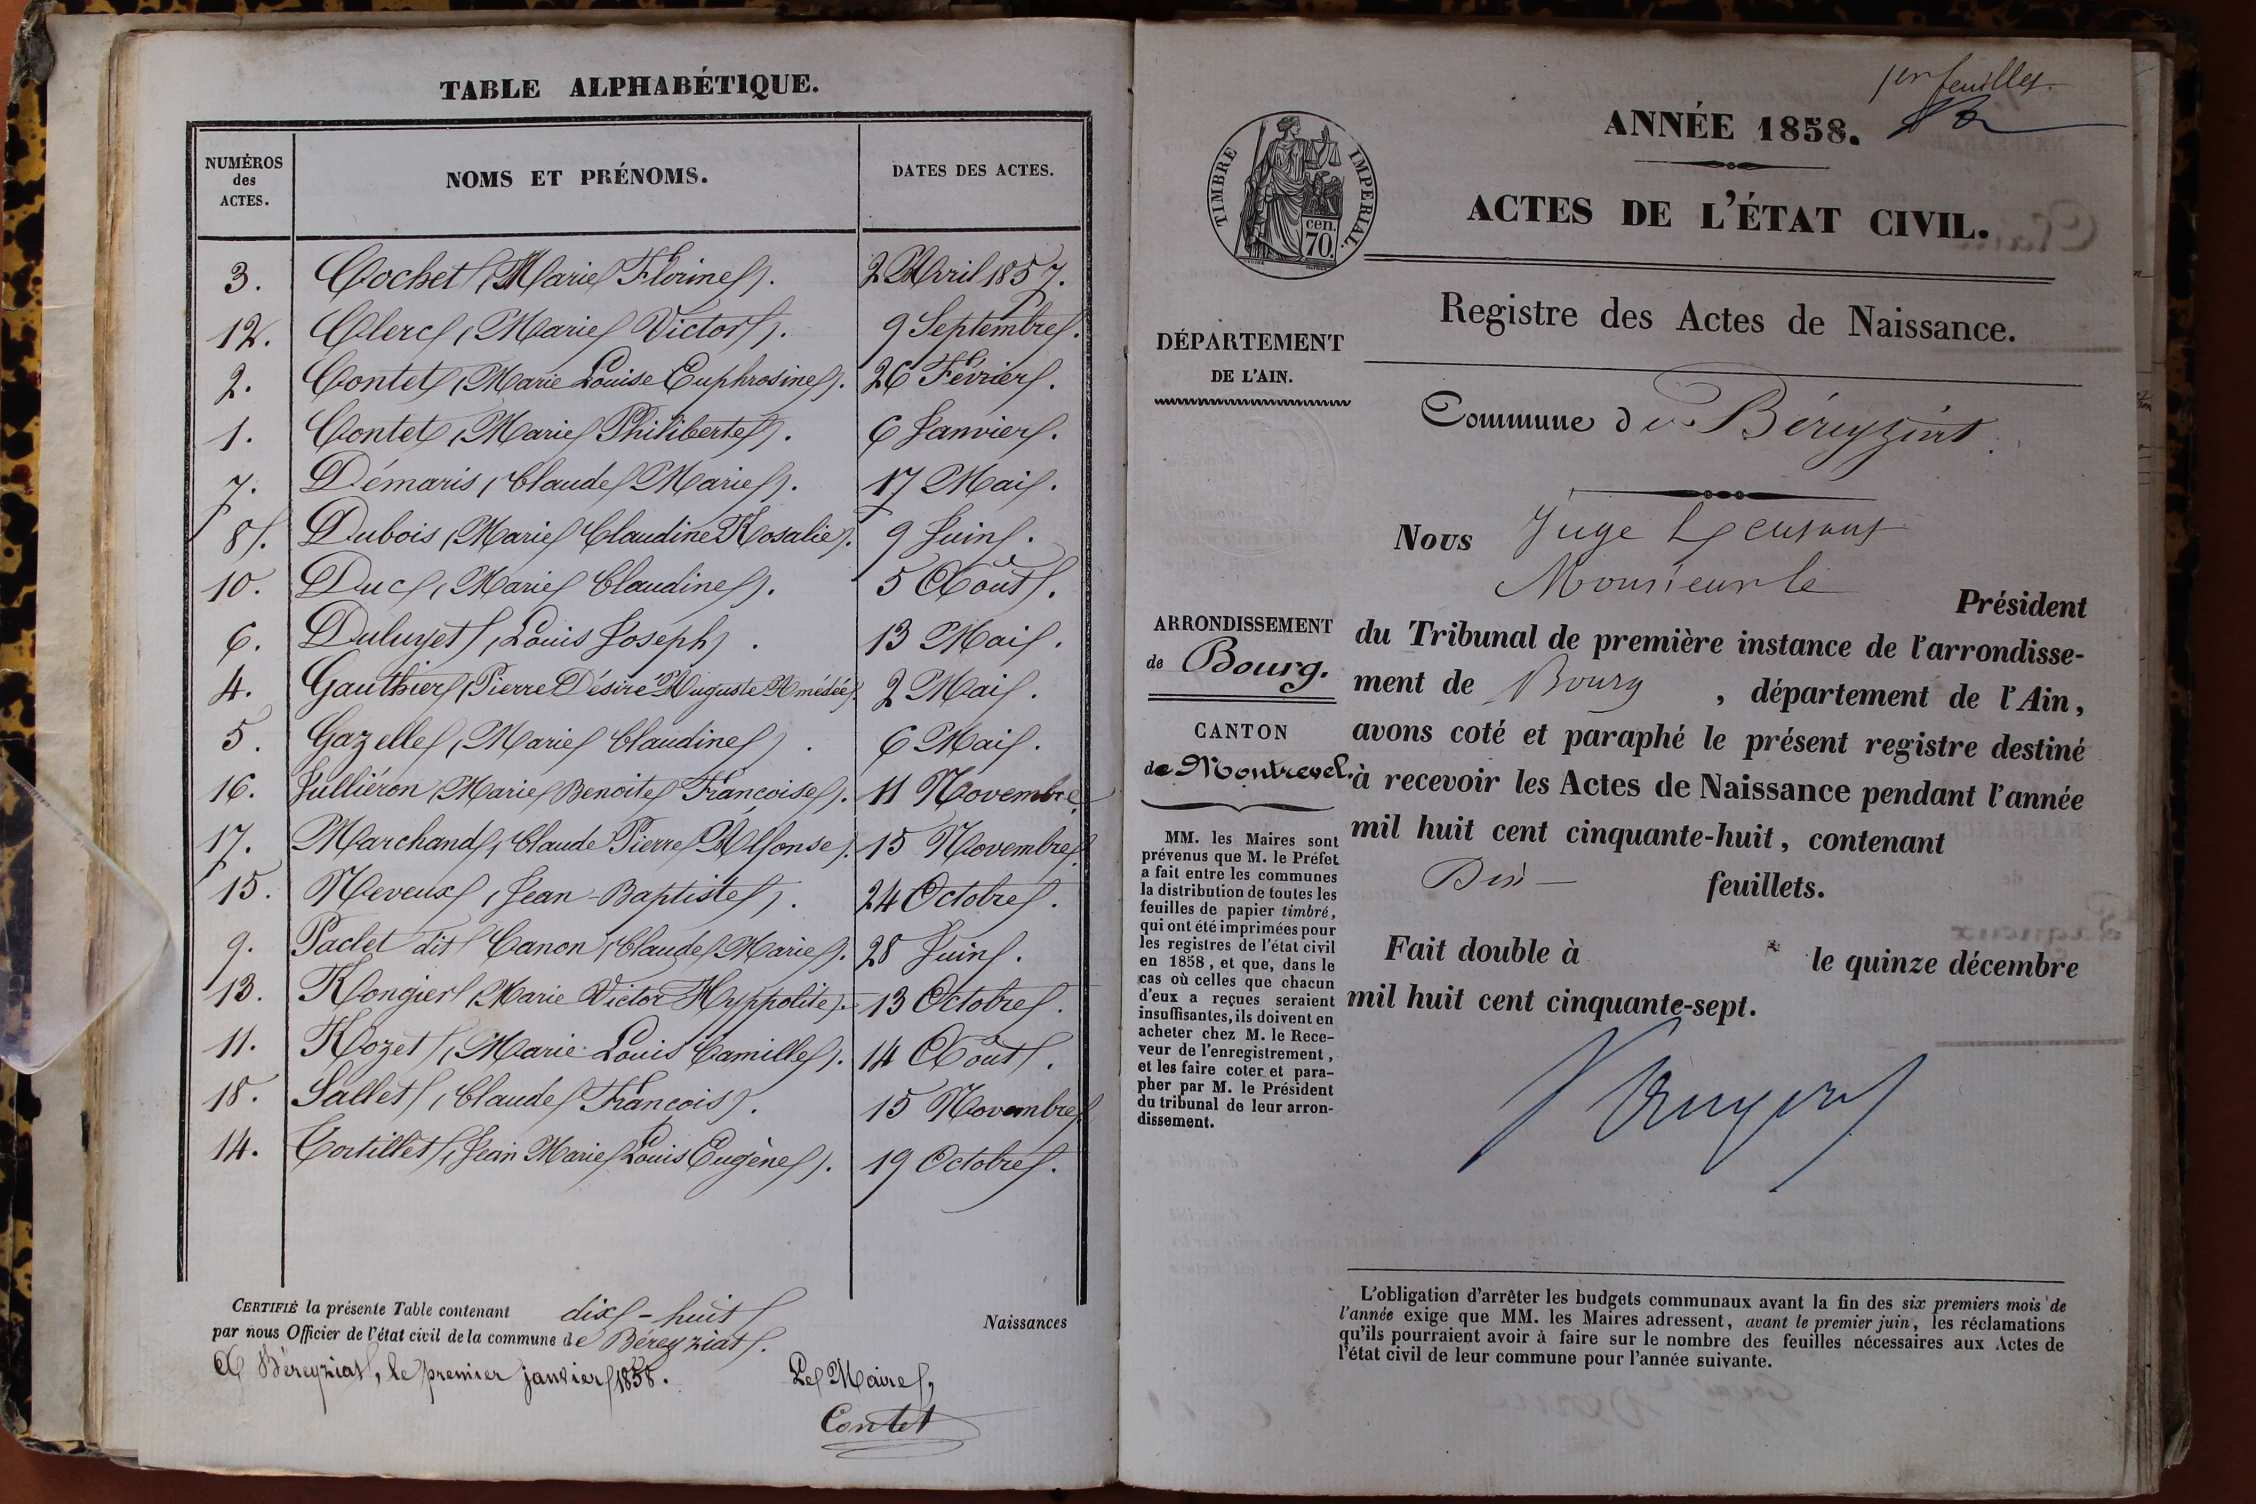 TABLE ALPHABÉTIQUE.
NUMÉROS des ACTES. NOMS ET PRÉNOMS. DATES DES ACTES.
3. Cochet, (Marie Florine). 2 Avril 1857.
12. Clerc, (Marie Victor). 9 Septembre.
2. Contet, (Marie Louise Euphrosine). 26 Février.
1. Contet, (Marie Philiberte). 6 Janvier.
7. Démaris, (Claude Marie). 17 Mai.
8. Dubois, (Marie Claudine Rosalie). 9 Juin.
10. Duc, (Marie Claudine). 5 Août.
6. Duluyet, (Louis Joseph). 13 Mai.
4. Gauthier, (Pierre Désiré Auguste Amédée). 2 Mai.
5. Gazelle, (Marie Claudine). 6 Mai.
16. Julliéron, (Marie Benoite Françoise). 11 Novembre
17. Marchand, (Claude Pierre Alfonse). 15 Novembre.
15. Neveux, (Jean-Baptiste). 24 Octobre.
9. Paclet dit Canon, (Claude Marie). 28 Juin.
13. Rongier, (Marie Victor Hyppolite). 13 Octobre.
11. Rozet, (Marie Louis Camille). 14 Août.
18. Sallet, (Claude François). 15 Novembre
14. Tortillet, (Jean Marie Louis Eugène). 19 Octobre.
CERTIFIÉ la présente Table contenant dix-huit Naissances
par nous Officier de l'état civil de la commune de Béreyziat.
A Béreyziat, le premier janvier 1858.
Le Maire,
Contet
1er feuillet.
ANNÉE 1858.
TIMBRE IMPERIAL.
cen. 70.
ACTES DE L'ÉTAT CIVIL.
Registre des Actes de Naissance.
DÉPARTEMENT
DE L'AIN.
Commune de Béreyziat
ARRONDISSEMENT
de Bourg.
CANTON
de Montrevel.
MM. les Maires sont
prévenus que M. le Préfet
a fait entre les communes
la distribution de toutes les
feuilles de papier timbré,
qui ont été imprimées pour
les registres de l'état civil
en 1858, et que, dans le
cas où celles que chacun
d'eux a reçues seraient
insuffisantes, ils doivent en
acheter chez M. le Rece-
veur de l'enregistrement,
et les faire coter et para-
pher par M. le Président
du tribunal de leur arron-
dissement.
Nous Juge
Monsieur le Président
du Tribunal de première instance de l'arrondisse-
ment de Bourg, département de l'Ain,
avons coté et paraphé le présent registre destiné
à recevoir les Actes de Naissance pendant l'année
mil huit cent cinquante-huit, contenant
Dix feuillets.
Fait double à le quinze décembre
mil huit cent cinquante-sept.
L'obligation d'arrêter les budgets communaux avant la fin des six premiers mois de
l'année exige que MM. les Maires adressent, avant le premier juin, les réclamations
qu'ils pourraient avoir à faire sur le nombre des feuilles nécessaires aux Actes de
l'état civil de leur commune pour l'année suivante.